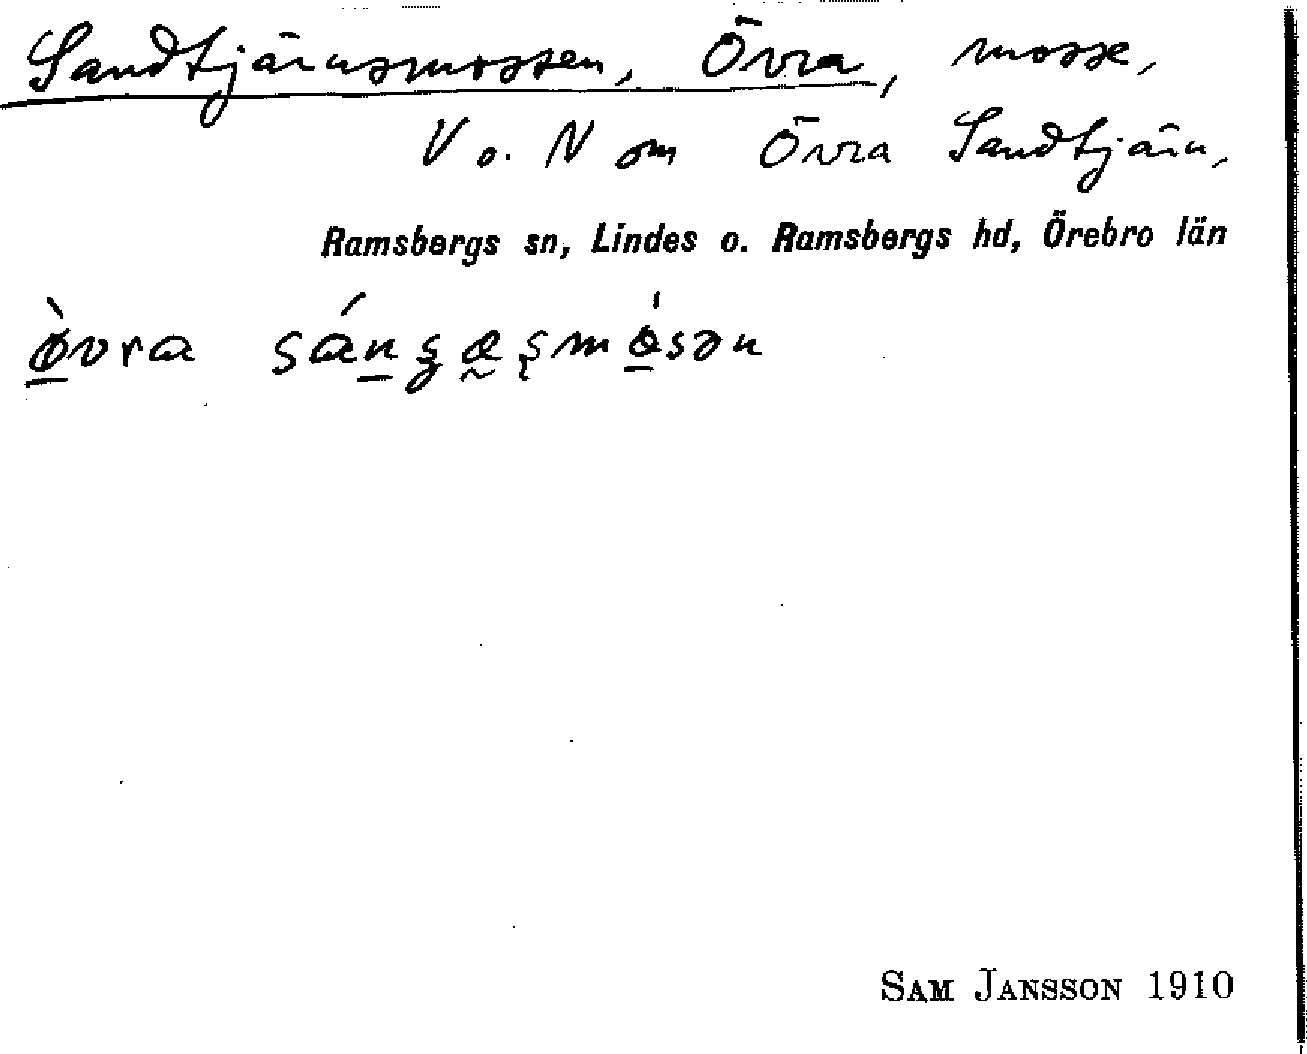 Sandtjärnsmossen, Övra, mosse,
V o. N om Övra Sandtjärn,
Ramsbergs sn, Lindes o. Ramsbergs hd, Örebro län
ø̠̀vra sán̠ʂæ̰ʂmɵ̠́sən
SAM JANSSON 1910